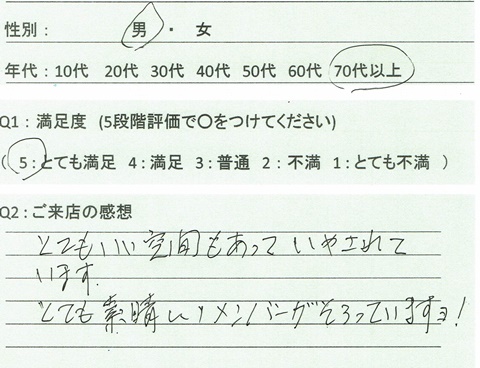 性別： 男 ・ 女
年代：10代 20代 30代 40代 50代 60代 70代以上
Q1：満足度 (5段階評価で○をつけてください)
( 5：とても満足 4：満足 3：普通 2：不満 1：とても不満 )
Q2：ご来店の感想
とてもいい空間もあっていやされて
います.
とても素晴しいメンバーがそろっていますヨ！